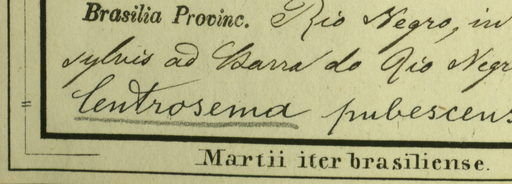 Brasilia Provinc. Rio Negro, in
sylvis ad Barra do Rio Negr
Centrosema pubescens
Martii iter brasiliense.